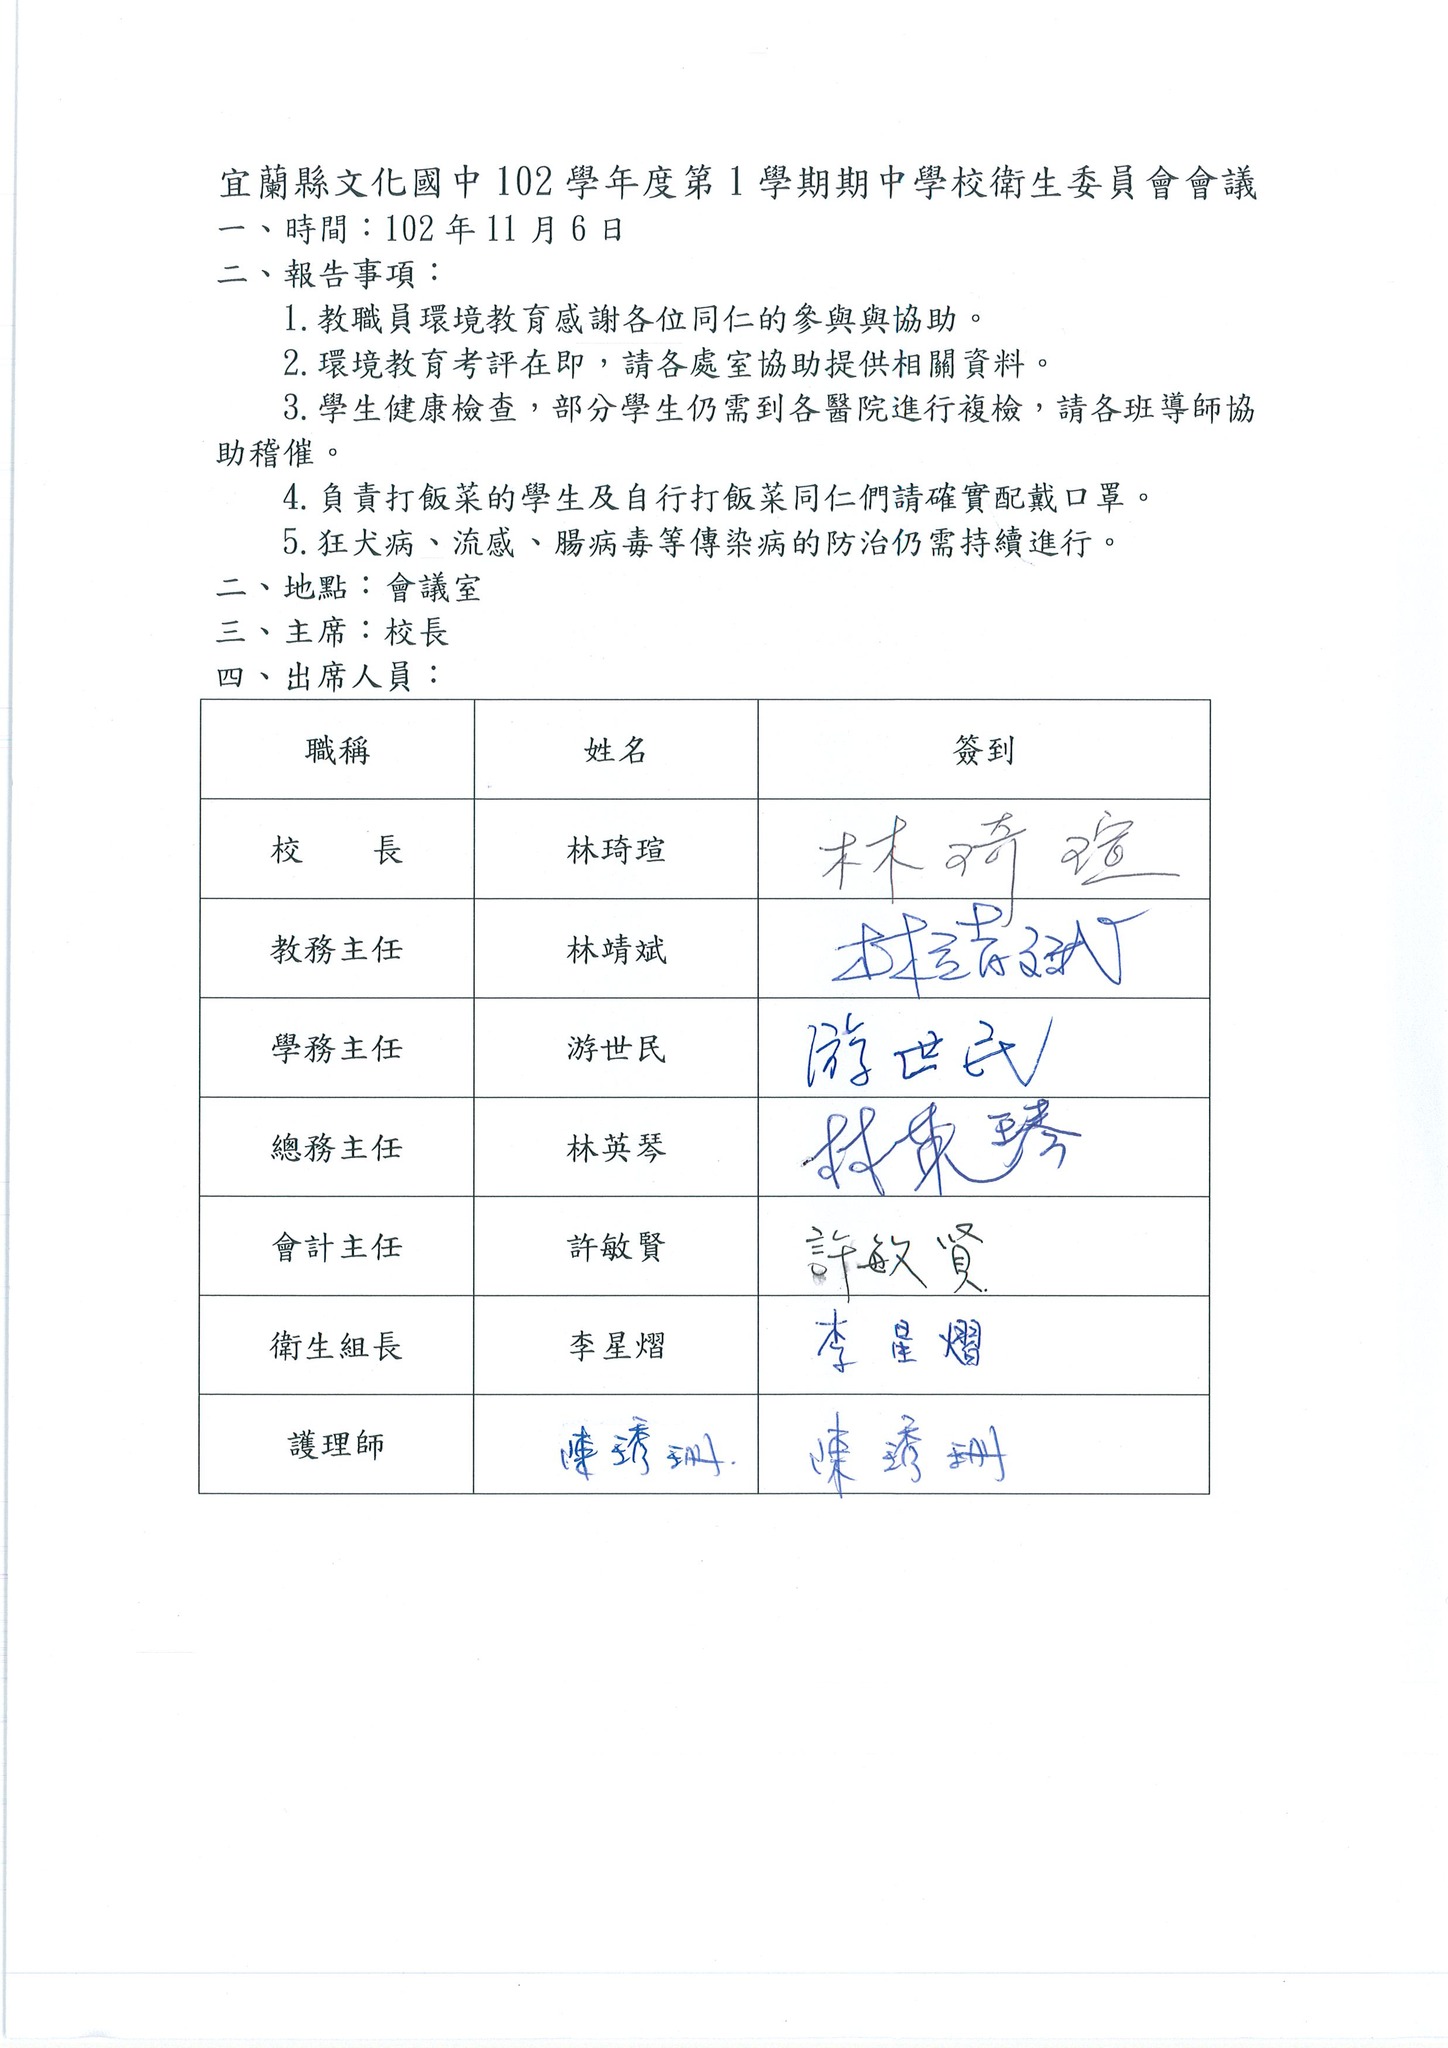 宜蘭縣文化國中 102 學年度第 1 學期期中學校衛生委員會會議
一、時間：102 年 11 月 6 日
二、報告事項：
1.教職員環境教育感謝各位同仁的參與與協助。
2.環境教育考評在即，請各處室協助提供相關資料。
3.學生健康檢查，部分學生仍需到各醫院進行複檢，請各班導師協
助稽催。
4.負責打飯菜的學生及自行打飯菜同仁們請確實配戴口罩。
5.狂犬病、流感、腸病毒等傳染病的防治仍需持續進行。
二、地點：會議室
三、主席：校長
四、出席人員：
職稱 姓名 簽到
校 長 林琦瑄 林琦瑄
教務主任 林靖斌 林靖斌
學務主任 游世民 游世民
總務主任 林英琴 林英琴
會計主任 許敏賢 許敏賢
衛生組長 李星熠 李星熠
護理師 陳琇珊. 陳琇珊